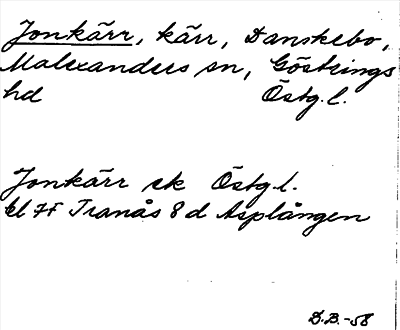 Jonkärr, kärr, Danskebo,
Malexanders sn, Göstrings
hd Östg.l.
Jonkärr ek Östg.l.
bl 7f Tranås 8 d Asplången
B.B.-58